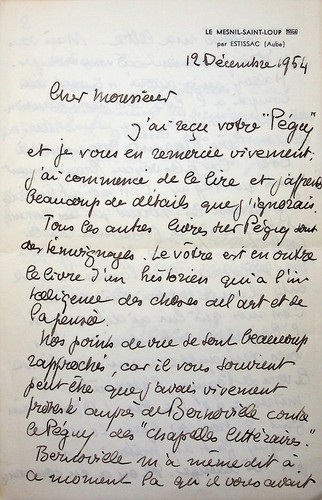 LE MESNIL-SAINT-LOUP
par ESTISSAC (Aube)
12 Décembre 1954
Cher Monsieur
J'ai reçu votre "Péguy"
et je vous en remercie vivement;
j'ai commencé de le lire et j'apprends
beaucoup de détails que j'ignorais.
Tous les autres livres sur Péguy sont
des témoignages. Le vôtre est en outre
le livre d'un historien qui a l'in
telligence des choses de l'art et de
la pensée.
Nos points de vue se sont beaucoup
rapprochés, car il vous souvient
peut être que j'avais vivement
protesté auprès de Bernoville contre
le Péguy des "chapelles littéraires."
Bernoville m'a même dit à
ce moment là qu'il vous avait